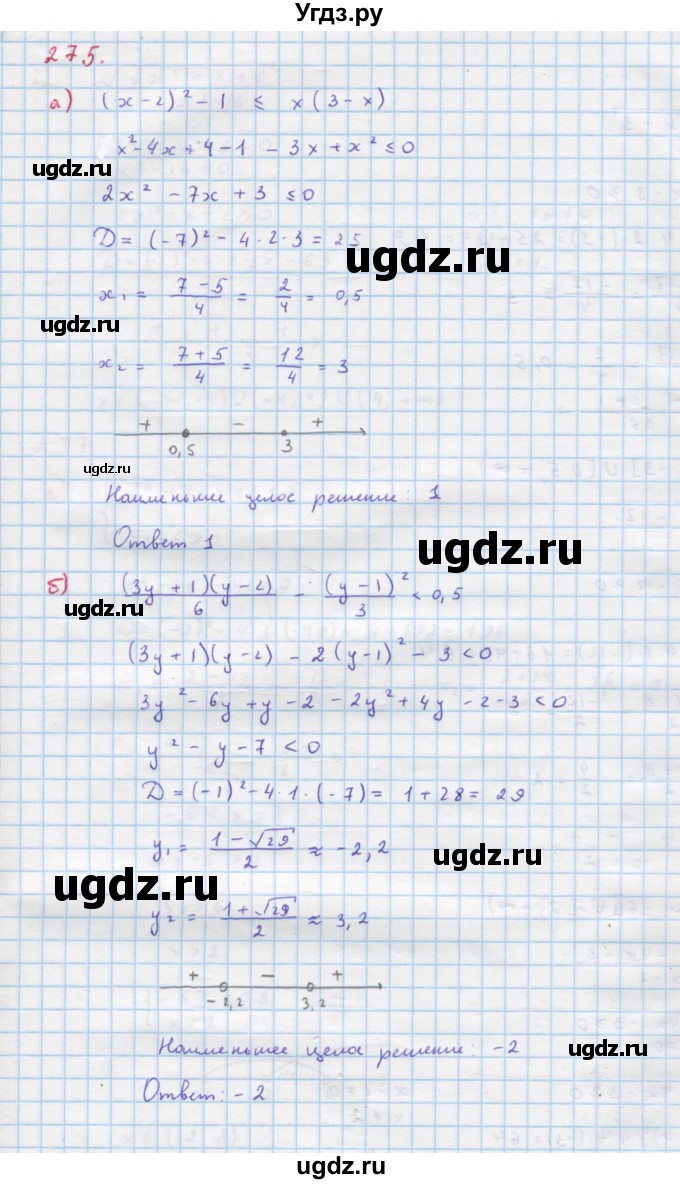 Угдз.ру
275.
а) (x-2)² - 1 ≤ x(3-x)
x² - 4x + 4 - 1 - 3x + x² ≤ 0
ugdz.ru
2x² - 7x + 3 ≤ 0
D = (-7)² - 4·2·3 = 25
ugdz.ru
x₁ = (7-5)/4 = 2/4 = 0,5
ugdz.ru
x₂ = (7+5)/4 = 12/4 = 3
+ - +
0,5 3
ugdz.ru
Наименьшее целое решение: 1
Ответ 1
ugdz.ru
б) (3y+1)(y-2)/6 - (y-1)²/3 < 0,5
ugdz.ru
(3y+1)(y-2) - 2(y-1)² - 3 < 0
3y² - 6y + y - 2 - 2y² + 4y - 2 - 3 < 0
y² - y - 7 < 0
D = (-1)² - 4·1·(-7) = 1 + 28 = 29
y₁ = (1-√29)/2 ≈ -2,2
ugdz.ru
ugdz.ru
y₂ = (1+√29)/2 ≈ 3,2
+ - +
-2,2 3,2
Наименьшее целое решение: -2
ugdz.ru
Ответ: -2
ugdz.ru